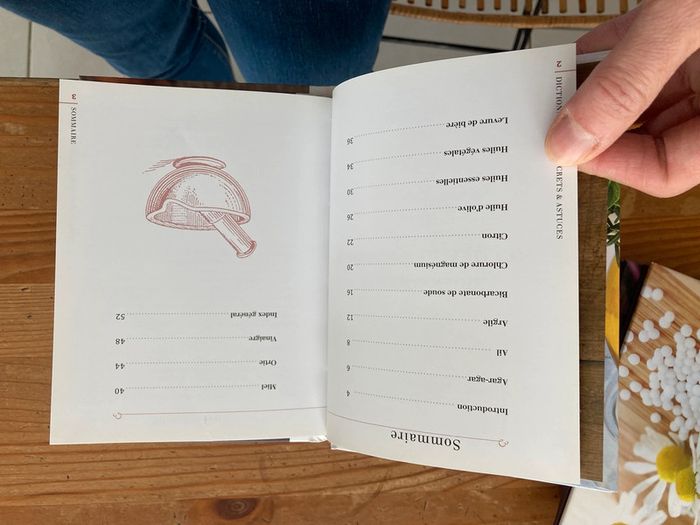 2
DICTION
CRETS & ASTUCES
Sommaire
Introduction 4
Agar-agar 6
Ail 8
Argile 12
Bicarbonate de soude 16
Chlorure de magnésium 20
Citron 22
Huile d'olive 26
Huiles essentielles 30
Huiles végétales 34
Levure de bière 36
3
SOMMAIRE
Miel 40
Ortie 44
Vinaigre 48
Index général 52